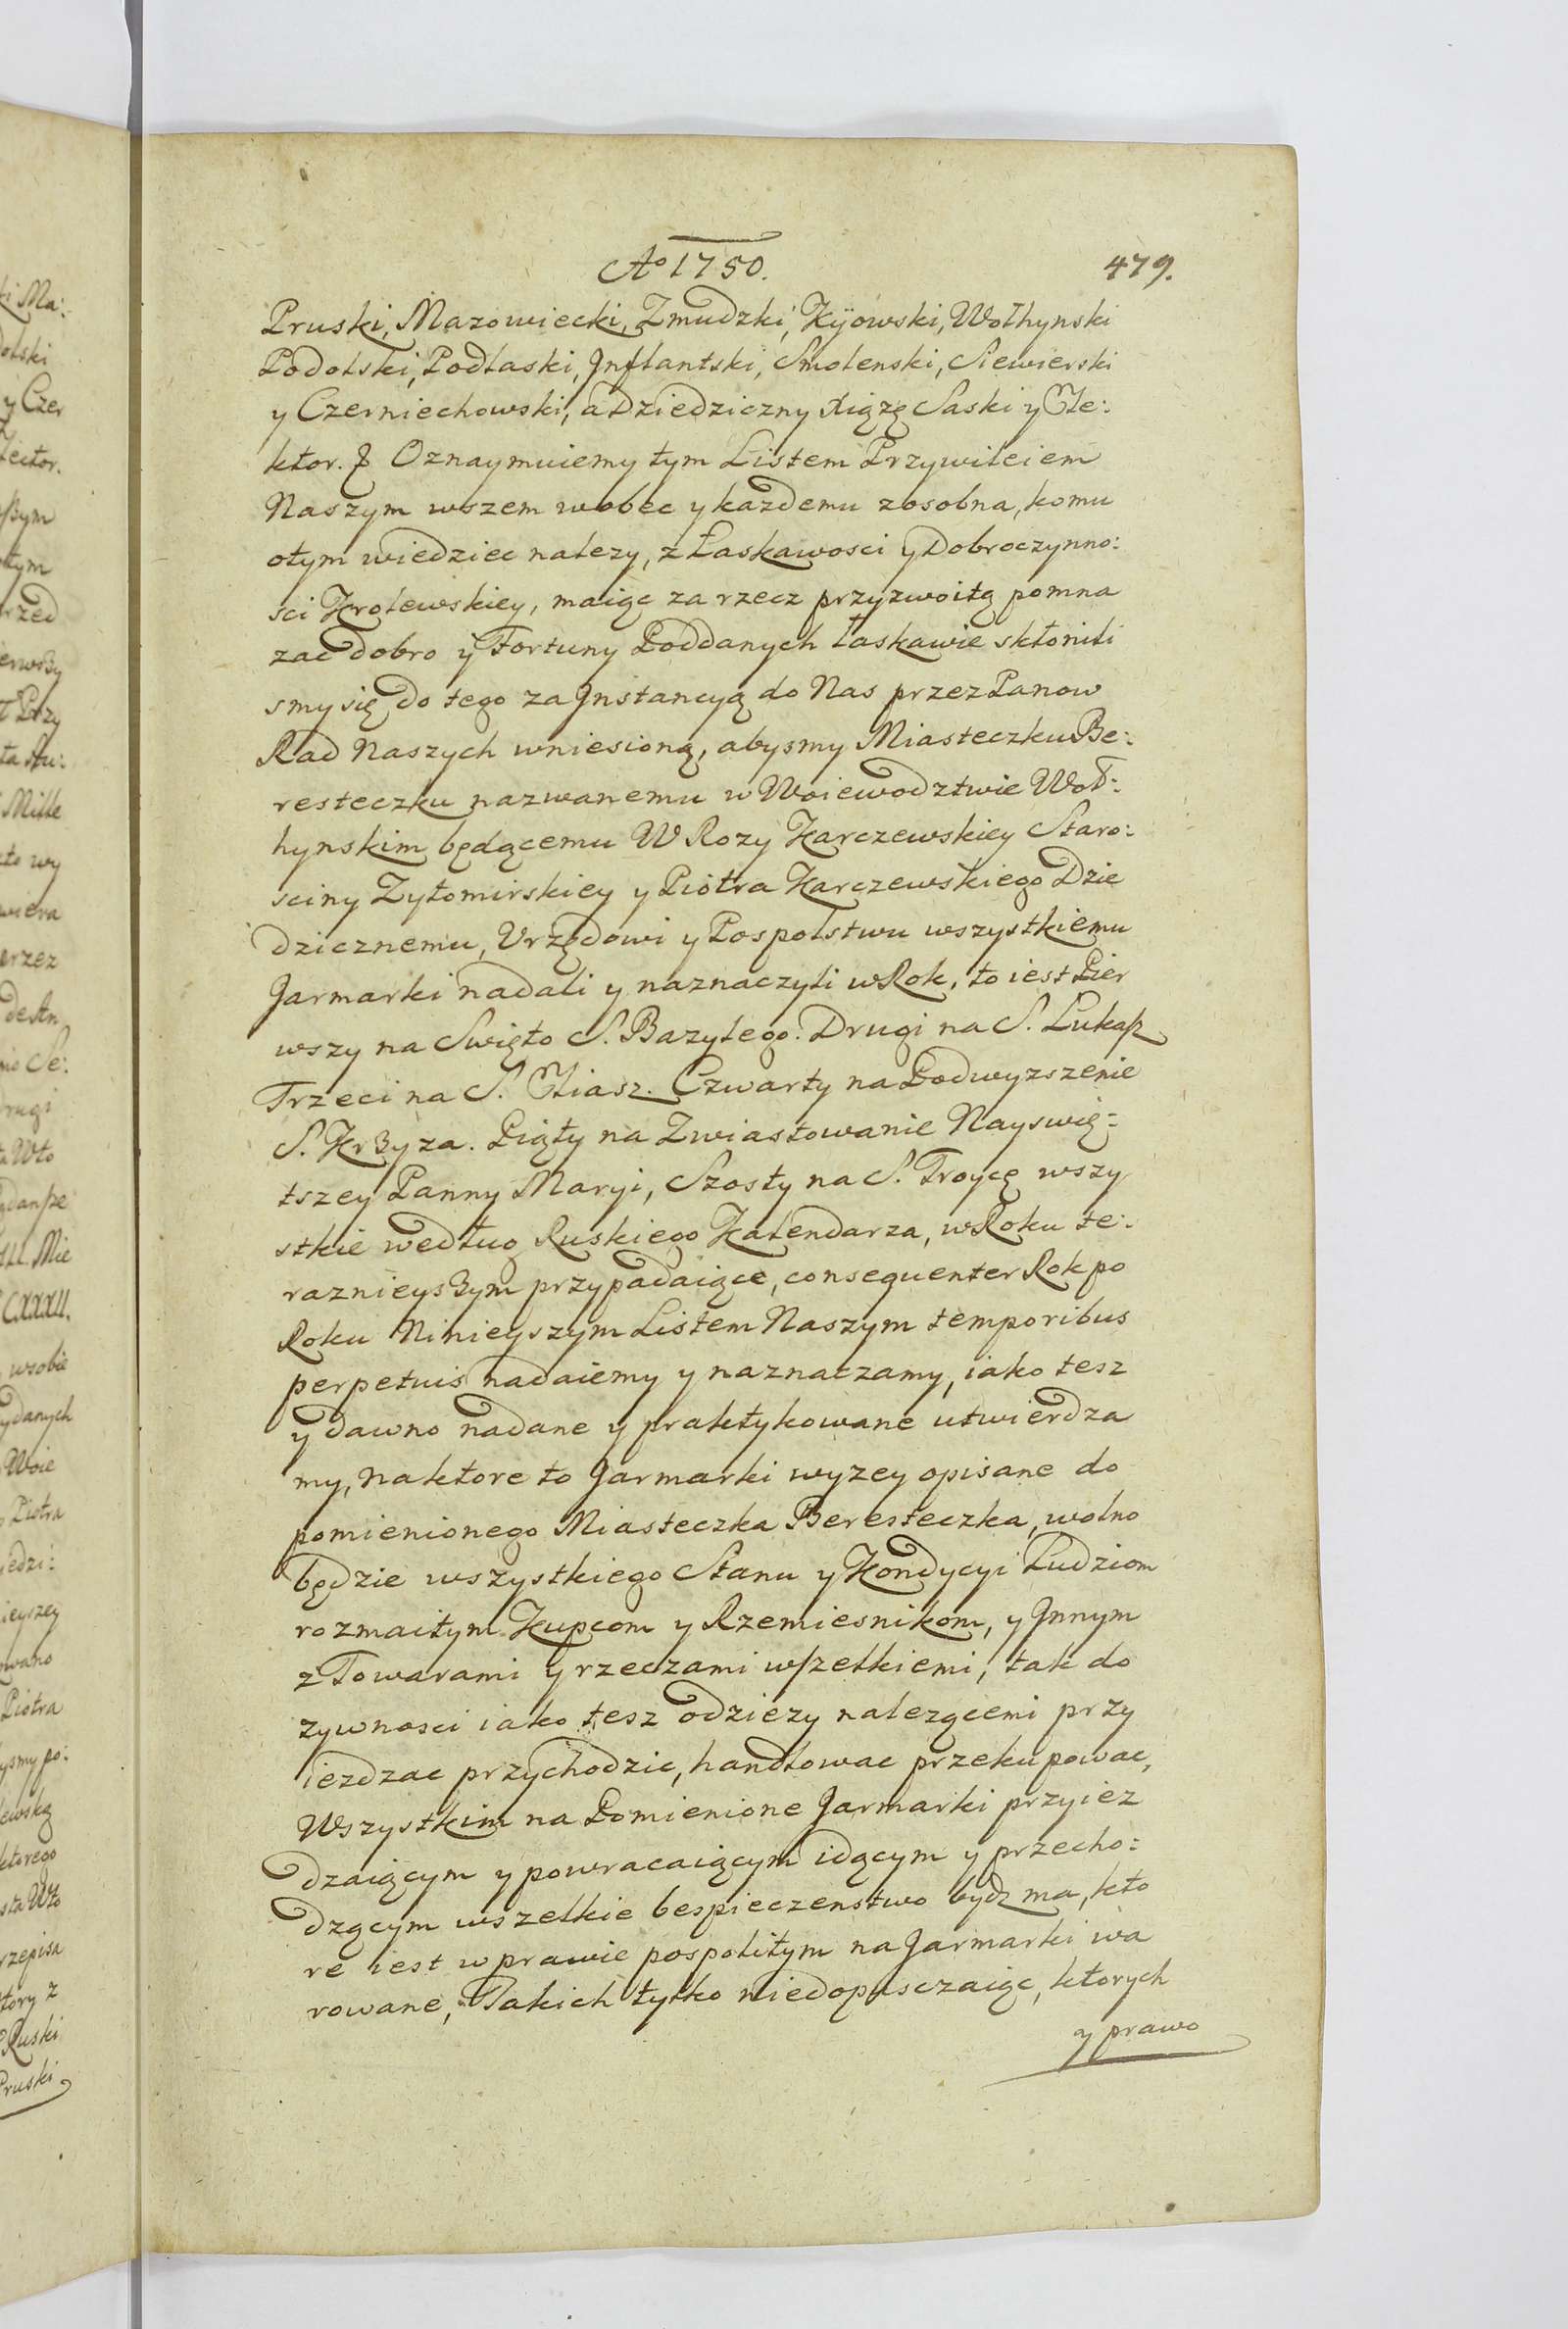 Aº 1750.
479.
Pruski, Mazowiecki, Zmudzki, Kijowski, Wołhynski
Podolski, Podlaski, Jnflantski, Smolenski, Siewierski
y Czerniechowski, a Dziedziczny Xiązę Saski y Ele:
ktor. Oznaymuiemy tym Listem Przywileiem
Naszym wszem wobec y kazdemu zosobna, komu
otym wiedziec nalezy, z Łaskawosci y Dobroczynno:
sci Krolewskiey, maiąc za rzecz przyzwoitą pomna
zac dobro y Fortuny Poddanych łaskawie skłonili
smy się do tego za Jnstancyą do Nas przez Panow
Rad Naszych wniesioną, abysmy Miasteczku Be:
resteczku nazwanemu w Woiewodztwie Woł:
hynskim będącemu W Rozy Karczewskiey Staro:
sciny Zytomirskiey y Piotra Karczewskiego Dzie
dzicznemu, Vrzędowi y Pospolstwu wszystkiemu
Jarmarki nadali y naznaczyli w Rok, to iest Pier
wszy na Swięto S. Bazylego. Drugi na S. Lukasz
Trzeci na S. Eliasz. Czwarty na Podwyzszenie
S. Krzyza. Piąty na Zwiastowanie Nayswię:
tszey Panny Maryi, Szosty na S. Troycę wszy
stkie według Ruskiego Kalendarza, w Roku te:
raznieyszym przypadaiące, consequenter Rok po
Roku Ninieyszym Listem Naszym temporibus
perpetuis nadaiemy y naznaczamy, iako tesz
y dawno nadane y praktykowane utwierdza
my, Na ktore to Jarmarki wyzey opisane do
pomienionego Miasteczka Beresteczka, wolno
będzie wszystkiego Stanu y Kondycyi Ludziom
rozmaitym Kupcom y Rzemiesnikom, y Jnnym
z Towarami y rzeczami wszelkiemi, tak do
zywnosci iako tesz odziezy nalezącemi przy
iezdzac przychodzic, handlowac przekupowac,
Wszystkim na Pomienione Jarmarki przyiez
dzaiącym y powracaiącym idącym y przecho:
dzącym wszelkie bespieczenstwo bydz ma, kto
re iest w prawie pospolitym na Jarmarki wa
rowane, Takich tylko niedopusczaiąc, ktorych
y prawo